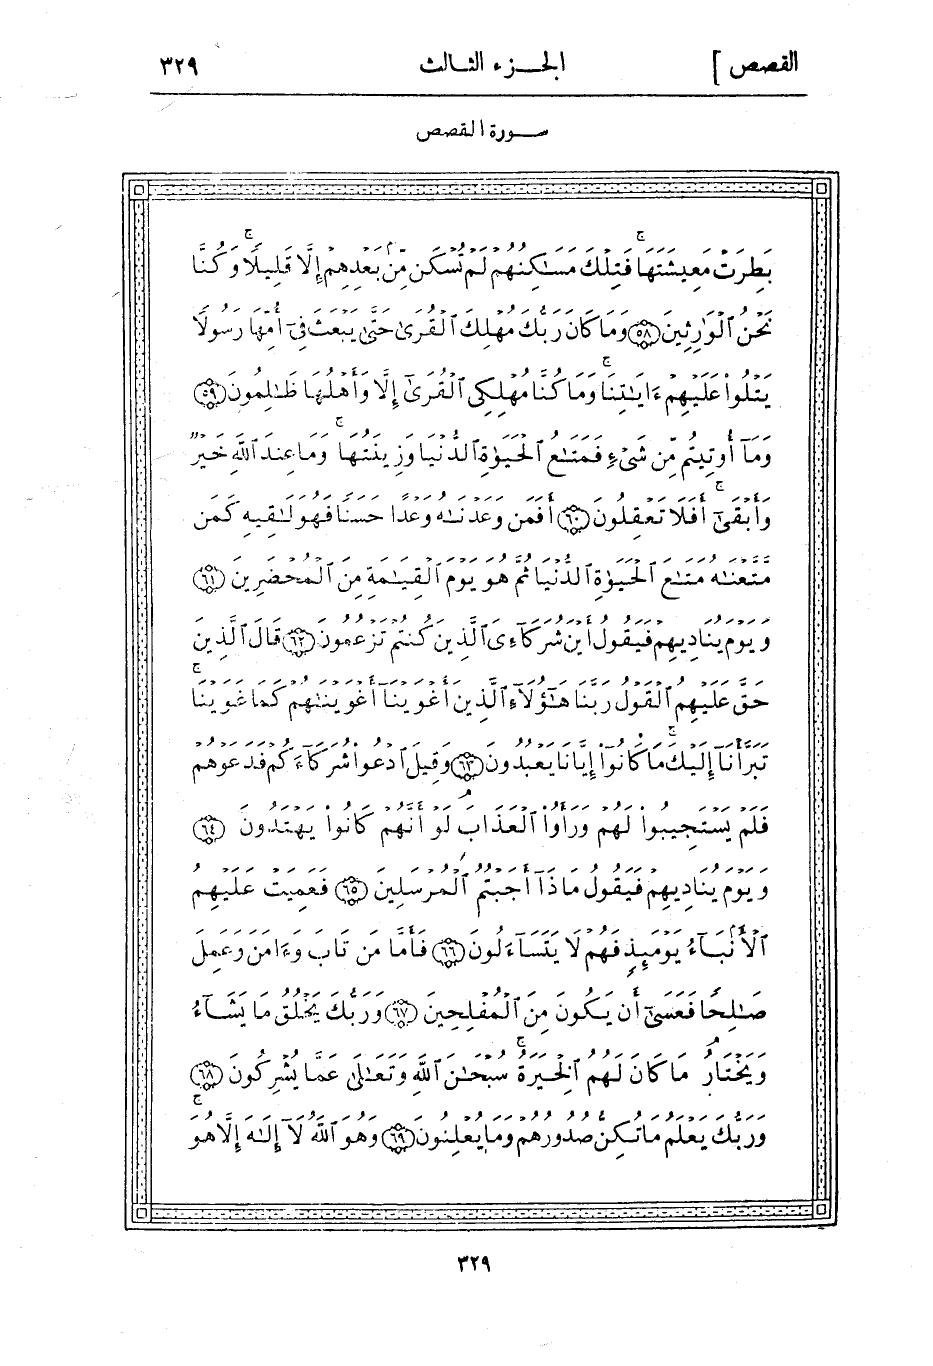 القصص ] الجزء الثالث ٣٢٩
سورة القصص
بَطِرَتْ مَعِيشَتَهَا ۖ فَتِلْكَ مَسَٰكِنُهُمْ لَمْ تُسْكَن مِّنۢ بَعْدِهِمْ إِلَّا قَلِيلًا ۖ وَكُنَّا
نَحْنُ ٱلْوَٰرِثِينَ ﴿٥٨﴾ وَمَا كَانَ رَبُّكَ مُهْلِكَ ٱلْقُرَىٰ حَتَّىٰ يَبْعَثَ فِىٓ أُمِّهَا رَسُولًا
يَتْلُوا۟ عَلَيْهِمْ ءَايَٰتِنَا ۚ وَمَا كُنَّا مُهْلِكِى ٱلْقُرَىٰٓ إِلَّا وَأَهْلُهَا ظَٰلِمُونَ ﴿٥٩﴾
وَمَآ أُوتِيتُم مِّن شَىْءٍ فَمَتَٰعُ ٱلْحَيَوٰةِ ٱلدُّنْيَا وَزِينَتُهَا ۚ وَمَا عِندَ ٱللَّهِ خَيْرٌ
وَأَبْقَىٰٓ ۚ أَفَلَا تَعْقِلُونَ ﴿٦٠﴾ أَفَمَن وَعَدْنَٰهُ وَعْدًا حَسَنًا فَهُوَ لَٰقِيهِ كَمَن
مَّتَّعْنَٰهُ مَتَٰعَ ٱلْحَيَوٰةِ ٱلدُّنْيَا ثُمَّ هُوَ يَوْمَ ٱلْقِيَٰمَةِ مِنَ ٱلْمُحْضَرِينَ ﴿٦١﴾
وَيَوْمَ يُنَادِيهِمْ فَيَقُولُ أَيْنَ شُرَكَآءِىَ ٱلَّذِينَ كُنتُمْ تَزْعُمُونَ ﴿٦٢﴾ قَالَ ٱلَّذِينَ
حَقَّ عَلَيْهِمُ ٱلْقَوْلُ رَبَّنَا هَٰٓؤُلَآءِ ٱلَّذِينَ أَغْوَيْنَآ أَغْوَيْنَٰهُمْ كَمَا غَوَيْنَا ۖ
تَبَرَّأْنَآ إِلَيْكَ ۖ مَا كَانُوٓا۟ إِيَّانَا يَعْبُدُونَ ﴿٦٣﴾ وَقِيلَ ٱدْعُوا۟ شُرَكَآءَكُمْ فَدَعَوْهُمْ
فَلَمْ يَسْتَجِيبُوا۟ لَهُمْ وَرَأَوُا۟ ٱلْعَذَابَ ۚ لَوْ أَنَّهُمْ كَانُوا۟ يَهْتَدُونَ ﴿٦٤﴾
وَيَوْمَ يُنَادِيهِمْ فَيَقُولُ مَاذَآ أَجَبْتُمُ ٱلْمُرْسَلِينَ ﴿٦٥﴾ فَعَمِيَتْ عَلَيْهِمُ
ٱلْأَنۢبَآءُ يَوْمَئِذٍ فَهُمْ لَا يَتَسَآءَلُونَ ﴿٦٦﴾ فَأَمَّا مَن تَابَ وَءَامَنَ وَعَمِلَ
صَٰلِحًا فَعَسَىٰٓ أَن يَكُونَ مِنَ ٱلْمُفْلِحِينَ ﴿٦٧﴾ وَرَبُّكَ يَخْلُقُ مَا يَشَآءُ
وَيَخْتَارُ ۗ مَا كَانَ لَهُمُ ٱلْخِيَرَةُ ۚ سُبْحَٰنَ ٱللَّهِ وَتَعَٰلَىٰ عَمَّا يُشْرِكُونَ ﴿٦٨﴾
وَرَبُّكَ يَعْلَمُ مَا تُكِنُّ صُدُورُهُمْ وَمَا يُعْلِنُونَ ﴿٦٩﴾ وَهُوَ ٱللَّهُ لَآ إِلَٰهَ إِلَّا هُوَ ۖ
٣٢٩